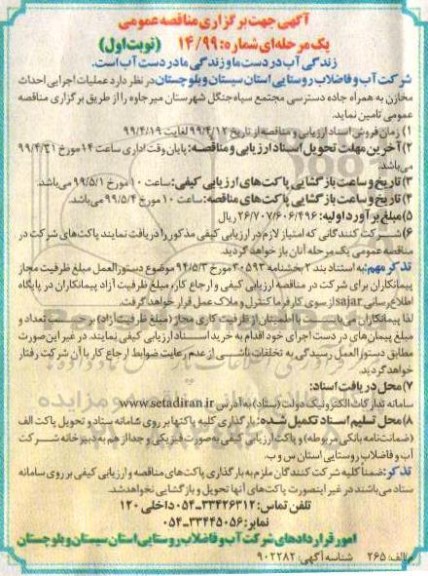 آگهی جهت برگزاری مناقصه عمومی
یک مرحله‌ای شماره: ۱۴/۹۹ (نوبت اول)
زندگی آب در دست ما و زندگی ما در دست آب است.
شرکت آب و فاضلاب روستایی استان سیستان و بلوچستان در نظر دارد عملیات اجرایی احداث
مخازن به همراه جاده دسترسی مجتمع سیاه جنگل شهرستان میرجاوه را از طریق برگزاری مناقصه
عمومی تامین نماید.
۱) زمان فروش اسناد ارزیابی و مناقصه از تاریخ ۹۹/۴/۱۲ لغایت ۹۹/۴/۱۹
۲) آخرین مهلت تحویل اسناد ارزیابی و مناقصه: پایان وقت اداری ساعت ۱۴ مورخ ۹۹/۴/۳۱
می‌باشد.
۳) تاریخ و ساعت بازگشایی پاکت‌های ارزیابی کیفی: ساعت ۱۰ مورخ ۹۹/۵/۱ می‌باشد.
۴) تاریخ و ساعت بازگشایی پاکت‌های مناقصه: ساعت ۱۰ مورخ ۹۹/۵/۴ می‌باشد.
۵) مبلغ برآورد اولیه: ۲۶/۷۰۷/۶۰۶/۴۹۶ ریال
۶) شرکت کنندگانی که امتیاز لازم در ارزیابی کیفی مذکور را دریافت نمایند پاکت‌های شرکت در
مناقصه عمومی یک مرحله آنان باز خواهد گردید.
تذکر مهم: به استناد بند ۲ بخشنامه ۳۰۵۹۳ مورخ ۹۴/۵/۳ موضوع دستورالعمل مبلغ ظرفیت مجاز
پیمانکاران برای شرکت در مناقصه ارزیابی کیفی و ارجاع کار، مبلغ ظرفیت آزاد پیمانکاران در پایگاه
اطلاع‌رسانی sajar از سوی کارفرما کنترل و ملاک عمل قرار خواهد گرفت.
لذا پیمانکاران می‌بایست با اطمینان از ظرفیت کاری مجاز (مبلغ ظرفیت آزاد) برحسب تعداد و
مبلغ پیمان‌های در دست اجرای خود اقدام به خرید اسناد ارزیابی کیفی نمایند. در غیر این صورت
مطابق دستورالعمل رسیدگی به تخلفات ناشی از عدم رعایت ضوابط ارجاع کار با آن شرکت رفتار
خواهد گردید.
۷) محل دریافت اسناد:
سامانه تدارکات الکترونیک دولت (ستاد) به آدرس www.setadiran.ir
۸) محل تسلیم اسناد تکمیل شده: بارگذاری کلیه پاکتها بر روی سامانه ستاد و تحویل پاکت الف
(ضمانت‌نامه بانکی مربوطه) و پاکت ارزیابی کیفی به صورت فیزیکی و جدا از هم به دبیرخانه شرکت
آب و فاضلاب روستایی استان س و ب.
تذکر: ضمنا کلیه شرکت کنندگان ملزم به بارگذاری پاکت‌های مناقصه و ارزیابی کیفی بر روی سامانه
ستاد می‌باشند در غیر اینصورت پاکت‌های آنها تحویل و بازگشایی نخواهد شد.
تلفن تماس: ۳۳۴۲۶۳۱۲-۰۵۴ داخلی ۱۲۰
نمابر: ۳۳۴۴۵۰۵۶-۰۵۴
امور قراردادهای شرکت آب و فاضلاب روستایی استان سیستان و بلوچستان
م الف: ۲۶۵ شناسه آگهی: ۹۰۲۲۸۲